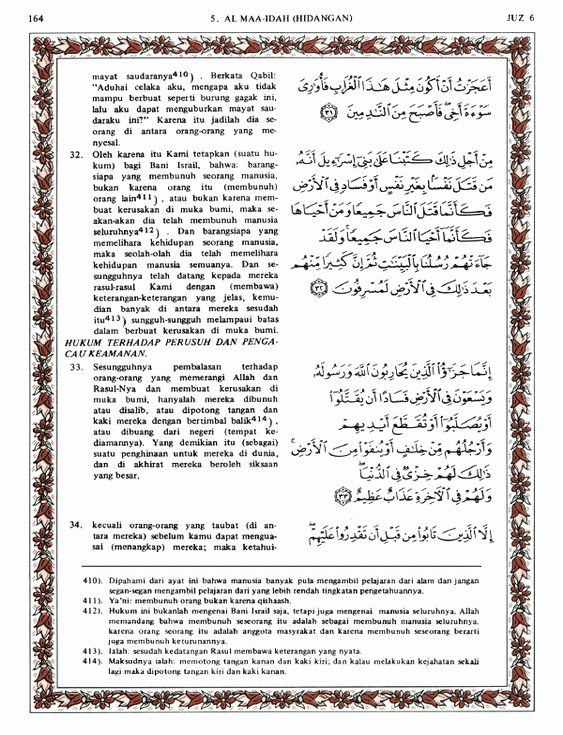 164
5. AL MAA-IDAH (HIDANGAN)
JUZ 6
mayat saudaranya410) . Berkata Qabil:
"Aduhai celaka aku, mengapa aku tidak
mampu berbuat seperti burung gagak ini,
lalu aku dapat menguburkan mayat sau-
daraku ini?" Karena itu jadilah dia se-
orang di antara orang-orang yang me-
nyesal.
أَعَجَزْتُ أَنْ أَكُونَ مِثْلَ هَٰذَا الْغُرَابِ فَأُوَارِيَ
سَوْءَةَ أَخِي فَأَصْبَحَ مِنَ النَّادِمِينَ ﴿٣١﴾
32. Oleh karena itu Kami tetapkan (suatu hu-
kum) bagi Bani Israil, bahwa: barang-
siapa yang membunuh seorang manusia,
bukan karena orang itu (membunuh)
orang lain411) , atau bukan karena mem-
buat kerusakan di muka bumi, maka se-
akan-akan dia telah membunuh manusia
seluruhnya412) . Dan barangsiapa yang
memelihara kehidupan seorang manusia,
maka seolah-olah dia telah memelihara
kehidupan manusia semuanya. Dan se-
sungguhnya telah datang kepada mereka
rasul-rasul Kami dengan (membawa)
keterangan-keterangan yang jelas, kemu-
dian banyak di antara mereka sesudah
itu413) sungguh-sungguh melampaui batas
dalam berbuat kerusakan di muka bumi.
مِنْ أَجْلِ ذَٰلِكَ كَتَبْنَا عَلَىٰ بَنِي إِسْرَائِيلَ أَنَّهُ
مَنْ قَتَلَ نَفْسًا بِغَيْرِ نَفْسٍ أَوْ فَسَادٍ فِي الْأَرْضِ
فَكَأَنَّمَا قَتَلَ النَّاسَ جَمِيعًا وَمَنْ أَحْيَاهَا
فَكَأَنَّمَا أَحْيَا النَّاسَ جَمِيعًا وَلَقَدْ
جَاءَتْهُمْ رُسُلُنَا بِالْبَيِّنَاتِ ثُمَّ إِنَّ كَثِيرًا مِنْهُمْ
بَعْدَ ذَٰلِكَ فِي الْأَرْضِ لَمُسْرِفُونَ ﴿٣٢﴾
HUKUM TERHADAP PERUSUH DAN PENGA-
CAU KEAMANAN.
33. Sesungguhnya pembalasan terhadap
orang-orang yang memerangi Allah dan
Rasul-Nya dan membuat kerusakan di
muka bumi, hanyalah mereka dibunuh
atau disalib, atau dipotong tangan dan
kaki mereka dengan bertimbal balik414) ,
atau dibuang dari negeri (tempat ke-
diamannya). Yang demikian itu (sebagai)
suatu penghinaan untuk mereka di dunia,
dan di akhirat mereka beroleh siksaan
yang besar,
إِنَّمَا جَزَاؤُا الَّذِينَ يُحَارِبُونَ اللَّهَ وَرَسُولَهُ
وَيَسْعَوْنَ فِي الْأَرْضِ فَسَادًا أَنْ يُقَتَّلُوا
أَوْ يُصَلَّبُوا أَوْ تُقَطَّعَ أَيْدِيهِمْ
وَأَرْجُلُهُمْ مِنْ خِلَافٍ أَوْ يُنْفَوْا مِنَ الْأَرْضِ
ذَٰلِكَ لَهُمْ خِزْيٌ فِي الدُّنْيَا
وَلَهُمْ فِي الْآخِرَةِ عَذَابٌ عَظِيمٌ ﴿٣٣﴾
34. kecuali orang-orang yang taubat (di an-
tara mereka) sebelum kamu dapat mengua-
sai (menangkap) mereka; maka ketahui-
إِلَّا الَّذِينَ تَابُوا مِنْ قَبْلِ أَنْ تَقْدِرُوا عَلَيْهِمْ
410). Dipahami dari ayat ini bahwa manusia banyak pula mengambil pelajaran dari alam dan jangan
segan-segan mengambil pelajaran dari yang lebih rendah tingkatan pengetahuannya.
411). Ya'ni: membunuh orang bukan karena qishaash.
412). Hukum ini bukanlah mengenai Bani Israil saja, tetapi juga mengenai manusia seluruhnya. Allah
memandang bahwa membunuh seseorang itu adalah sebagai membunuh manusia seluruhnya,
karena orang seorang itu adalah anggota masyrakat dan karena membunuh seseorang berarti
juga membunuh keturunannya.
413). Ialah: sesudah kedatangan Rasul membawa keterangan yang nyata.
414). Maksudnya ialah: memotong tangan kanan dan kaki kiri; dan kalau melakukan kejahatan sekali
lagi maka dipotong tangan kiri dan kaki kanan.